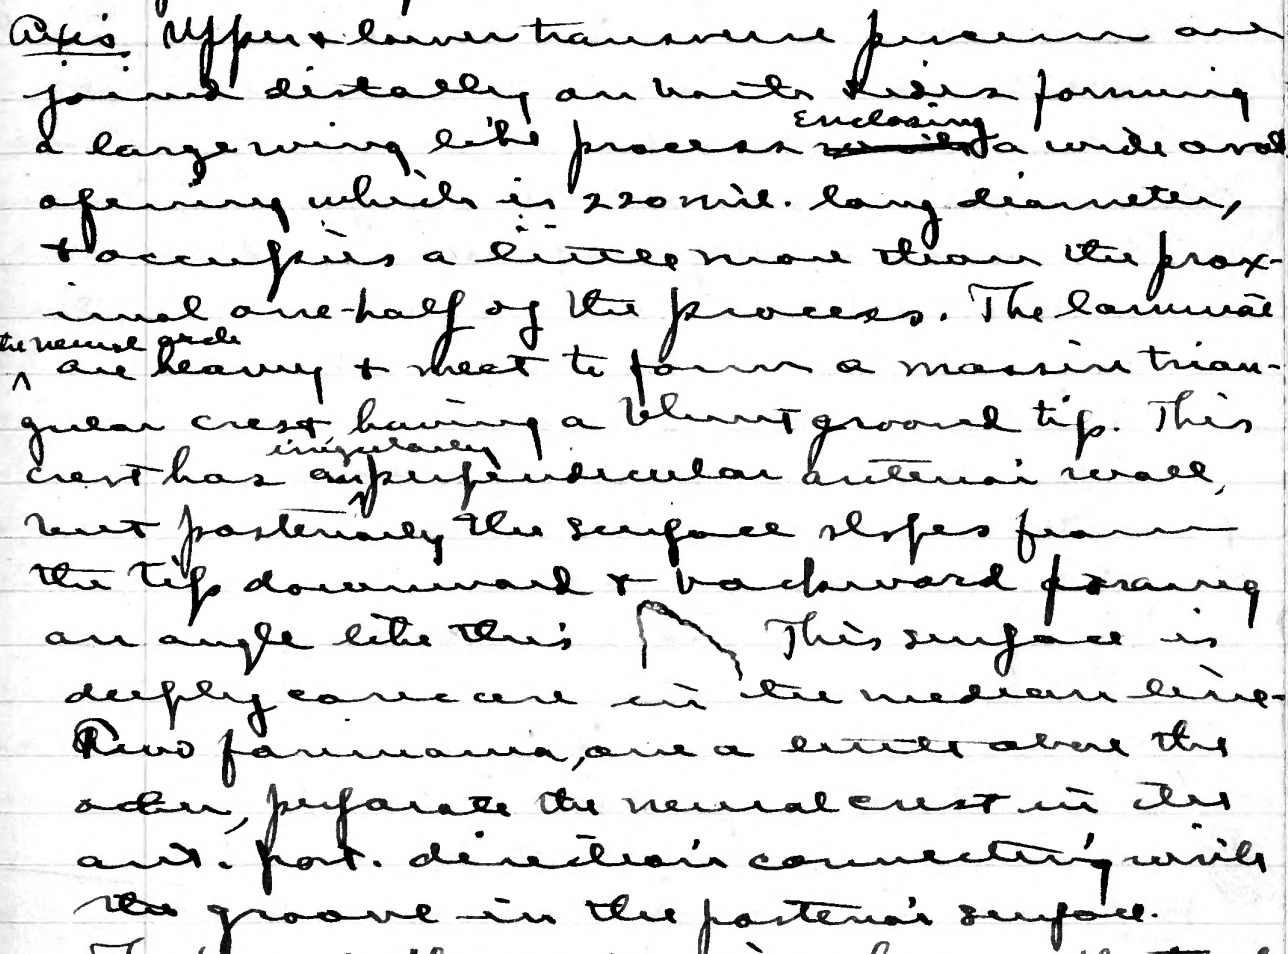 Axis Upper & lower transverse processes are
joined distally on both sides forming
a large wing like process enclosing a wide oval
opening which is 220 mil. long diameter,
& occupies a little more than the prox-
imal one-half of the process. The laminae
the neural arch
are heavy & meet to form a massive trian-
gular crest having a blunt ground tip. This
crest has an irregularly perpendicular anterior wall,
but posteriorly the surface slopes from
the tip downward & backward forming
an angle like this This surface is
deeply concave in the median line-
Two foramina, one a little above the
other, perforate the neural crest in its
ant. post. direction connecting with
the groove in the posterior surface.